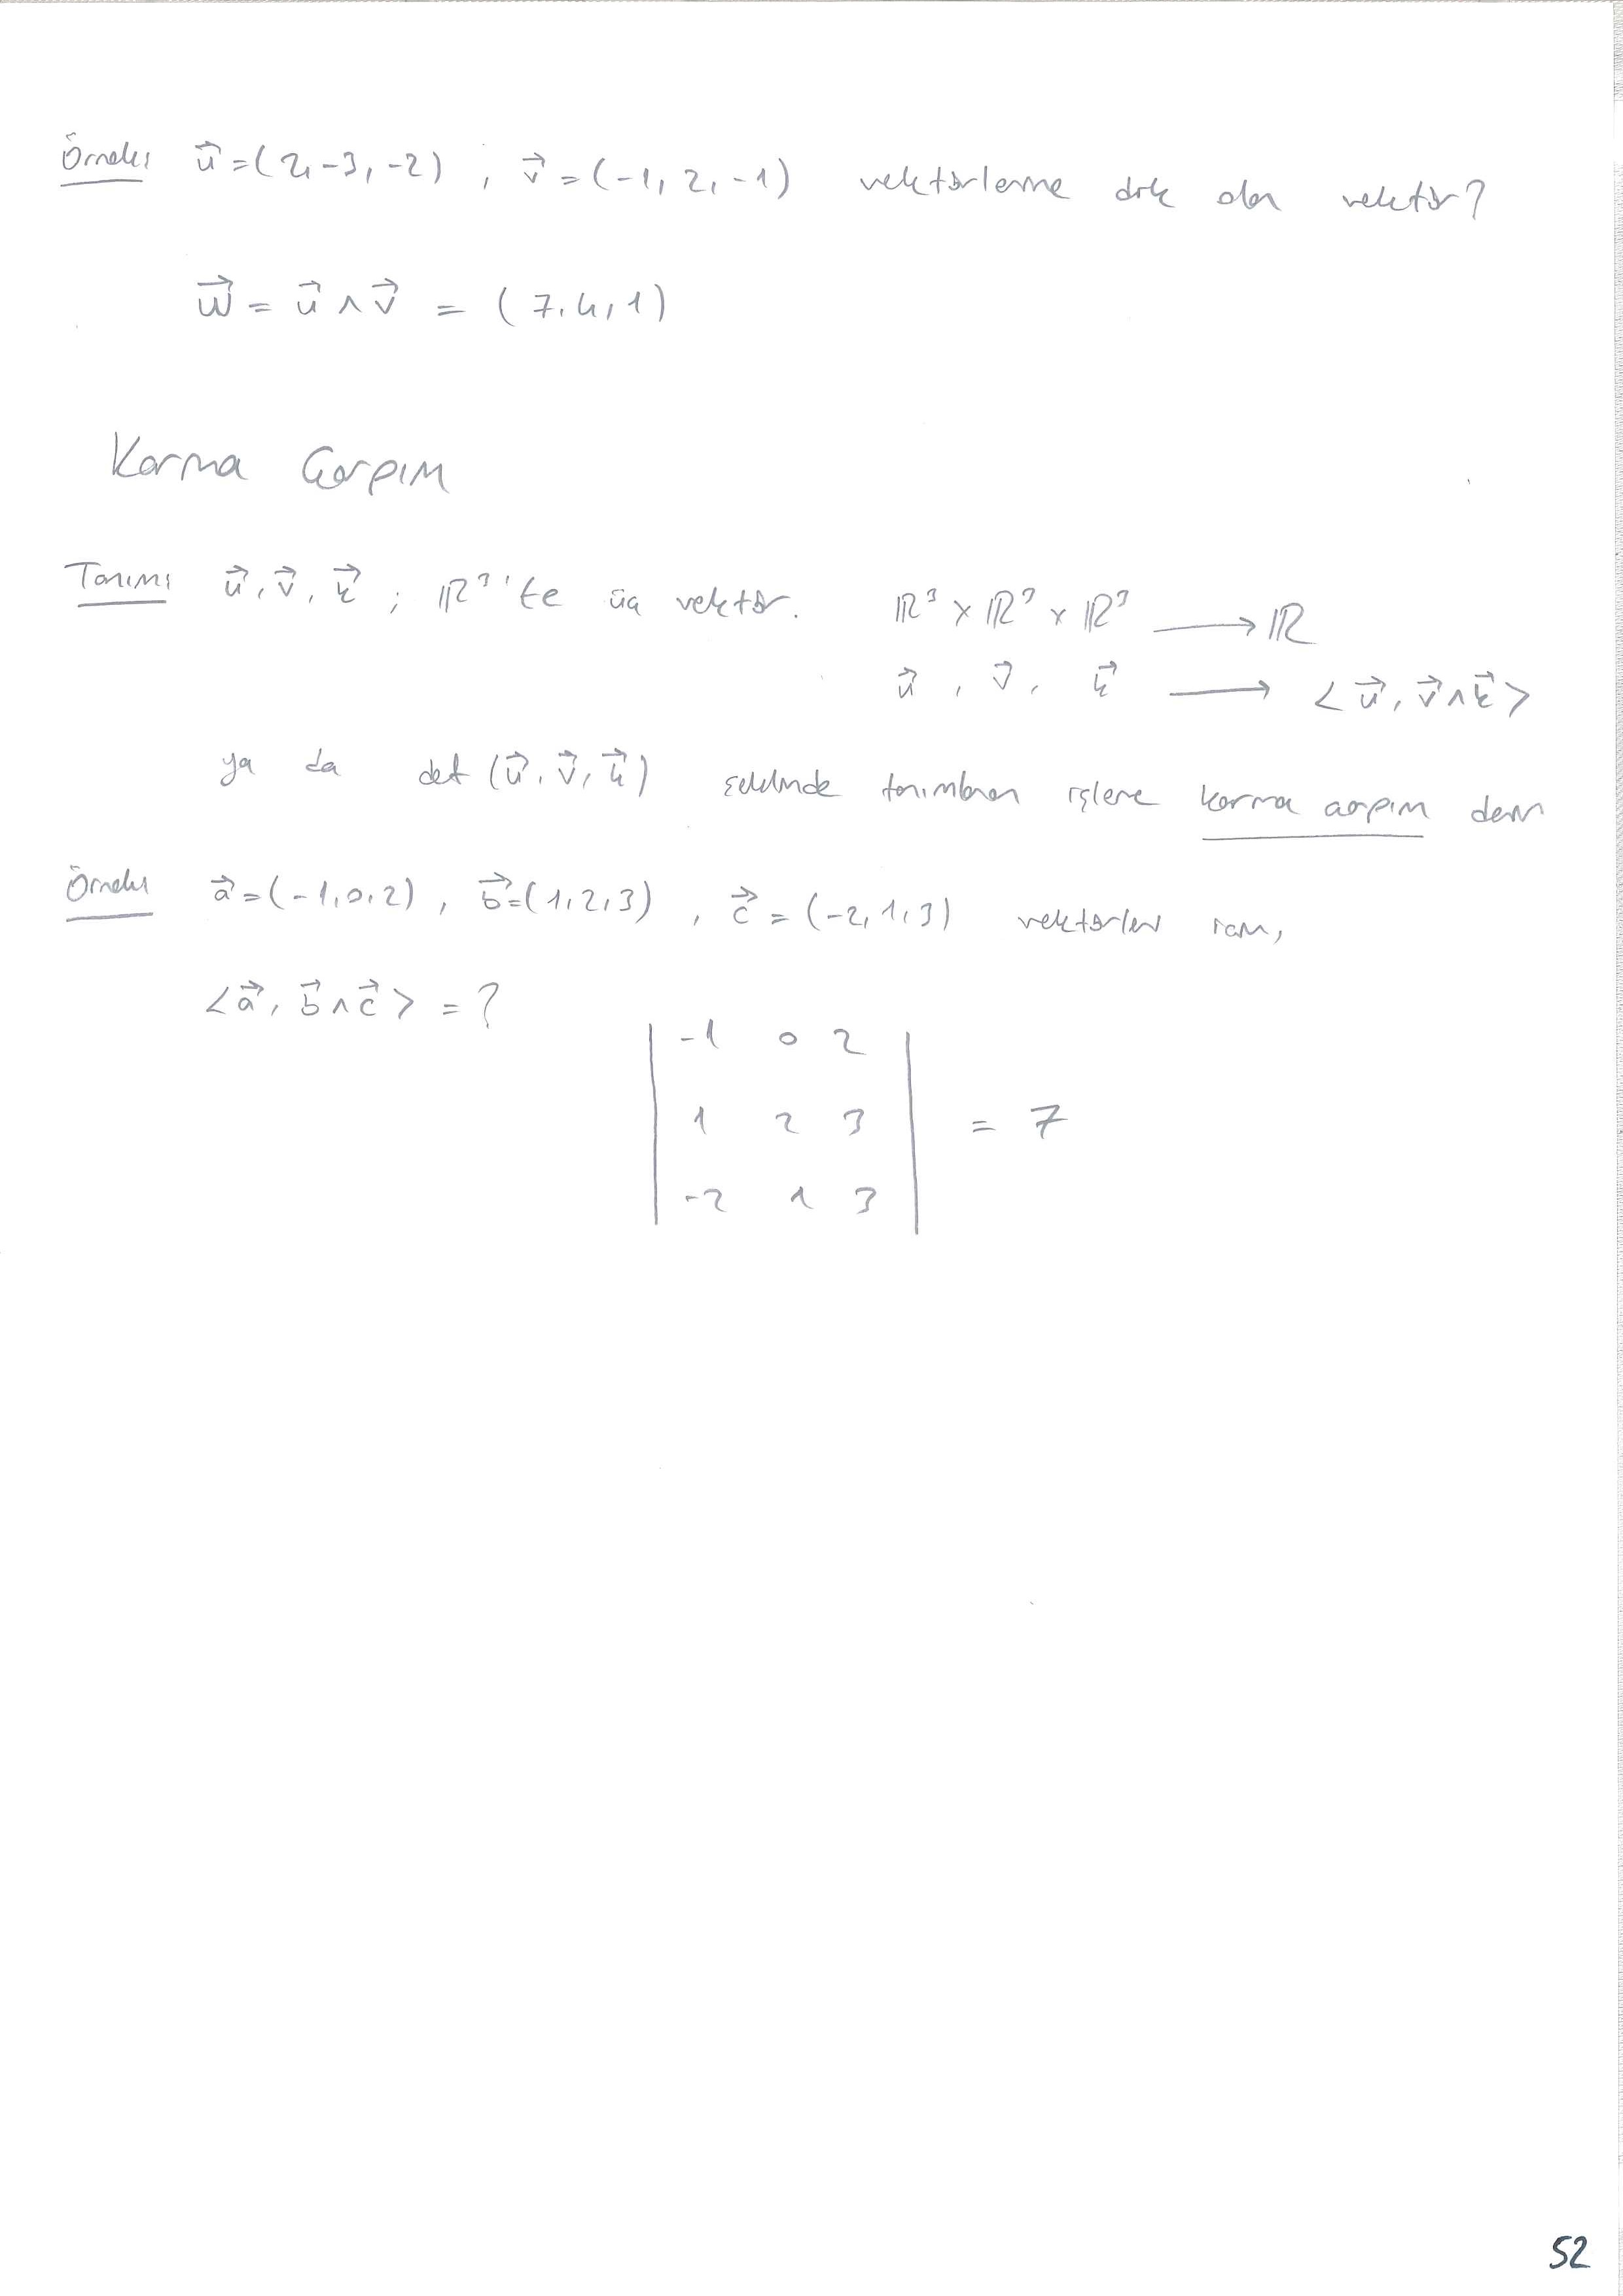 Örnek: u⃗=(2,-3,-2) , v⃗=(-1,2,-1) vektörlerine dik olan vektör?
w⃗ = u⃗ ∧ v⃗ = (7,4,1)
Karma Çarpım
Tanım: u⃗, v⃗, k⃗ ; ℝ³'te üç vektör. ℝ³ × ℝ³ × ℝ³ ⟶ ℝ
u⃗ , v⃗ , k⃗ ⟶ <u⃗, v⃗∧k⃗>
ya da det (u⃗, v⃗, k⃗) şeklinde tanımlanan işleme karma çarpım denir
Örnek: a⃗=(-1,0,2) , b⃗=(1,2,3) , c⃗=(-2,1,3) vektörleri için,
<a⃗, b⃗∧c⃗> = ?
| -1 0 2 |
| 1 2 3 | = 7
| -2 1 3 |
52